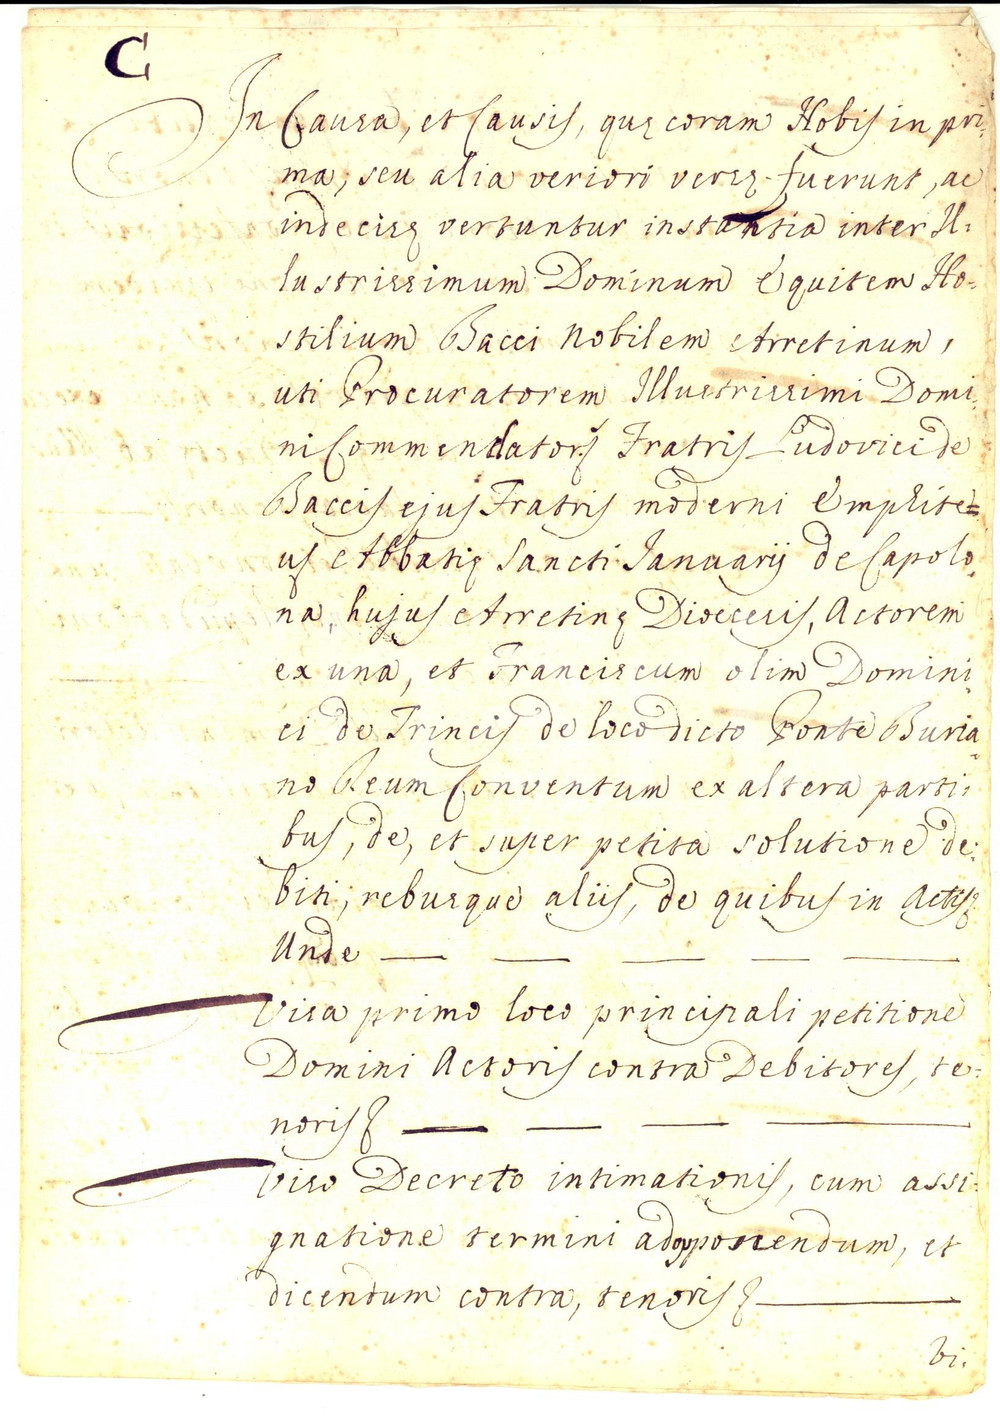 C
In Causa, et Causis, quę coram Nobis in pri-
ma, seu alia veriori versę fuerunt, ac
indecisę vertuntur instantia inter Il-
lustrissimum Dominum Equitem Ho-
stilium Bacci Nobilem Arretinum,
uti Procuratorem Illustrissimi Domi-
ni Commendatoris Fratris Ludovici de
Baccis ejus Fratris moderni Emphite=
us Abbatię Sancti Januarij de Capolo-
na, hujus Arretinę Dioecesis, Actorem
ex una, et Franciscum olim Domini-
ci de Trincis de loco dicto Ponte Buria-
no Reum Conventum ex altera parti-
bus, de, et super petita solutione de-
biti, rebusque aliis, de quibus in Actis
Unde
Visa primo loco principali petitione
Domini Actoris contra Debitores, te-
noris
Viso Decreto intimationis, cum assi-
gnatione termini ad opponendum, et
dicendum contra, tenoris
Vi-